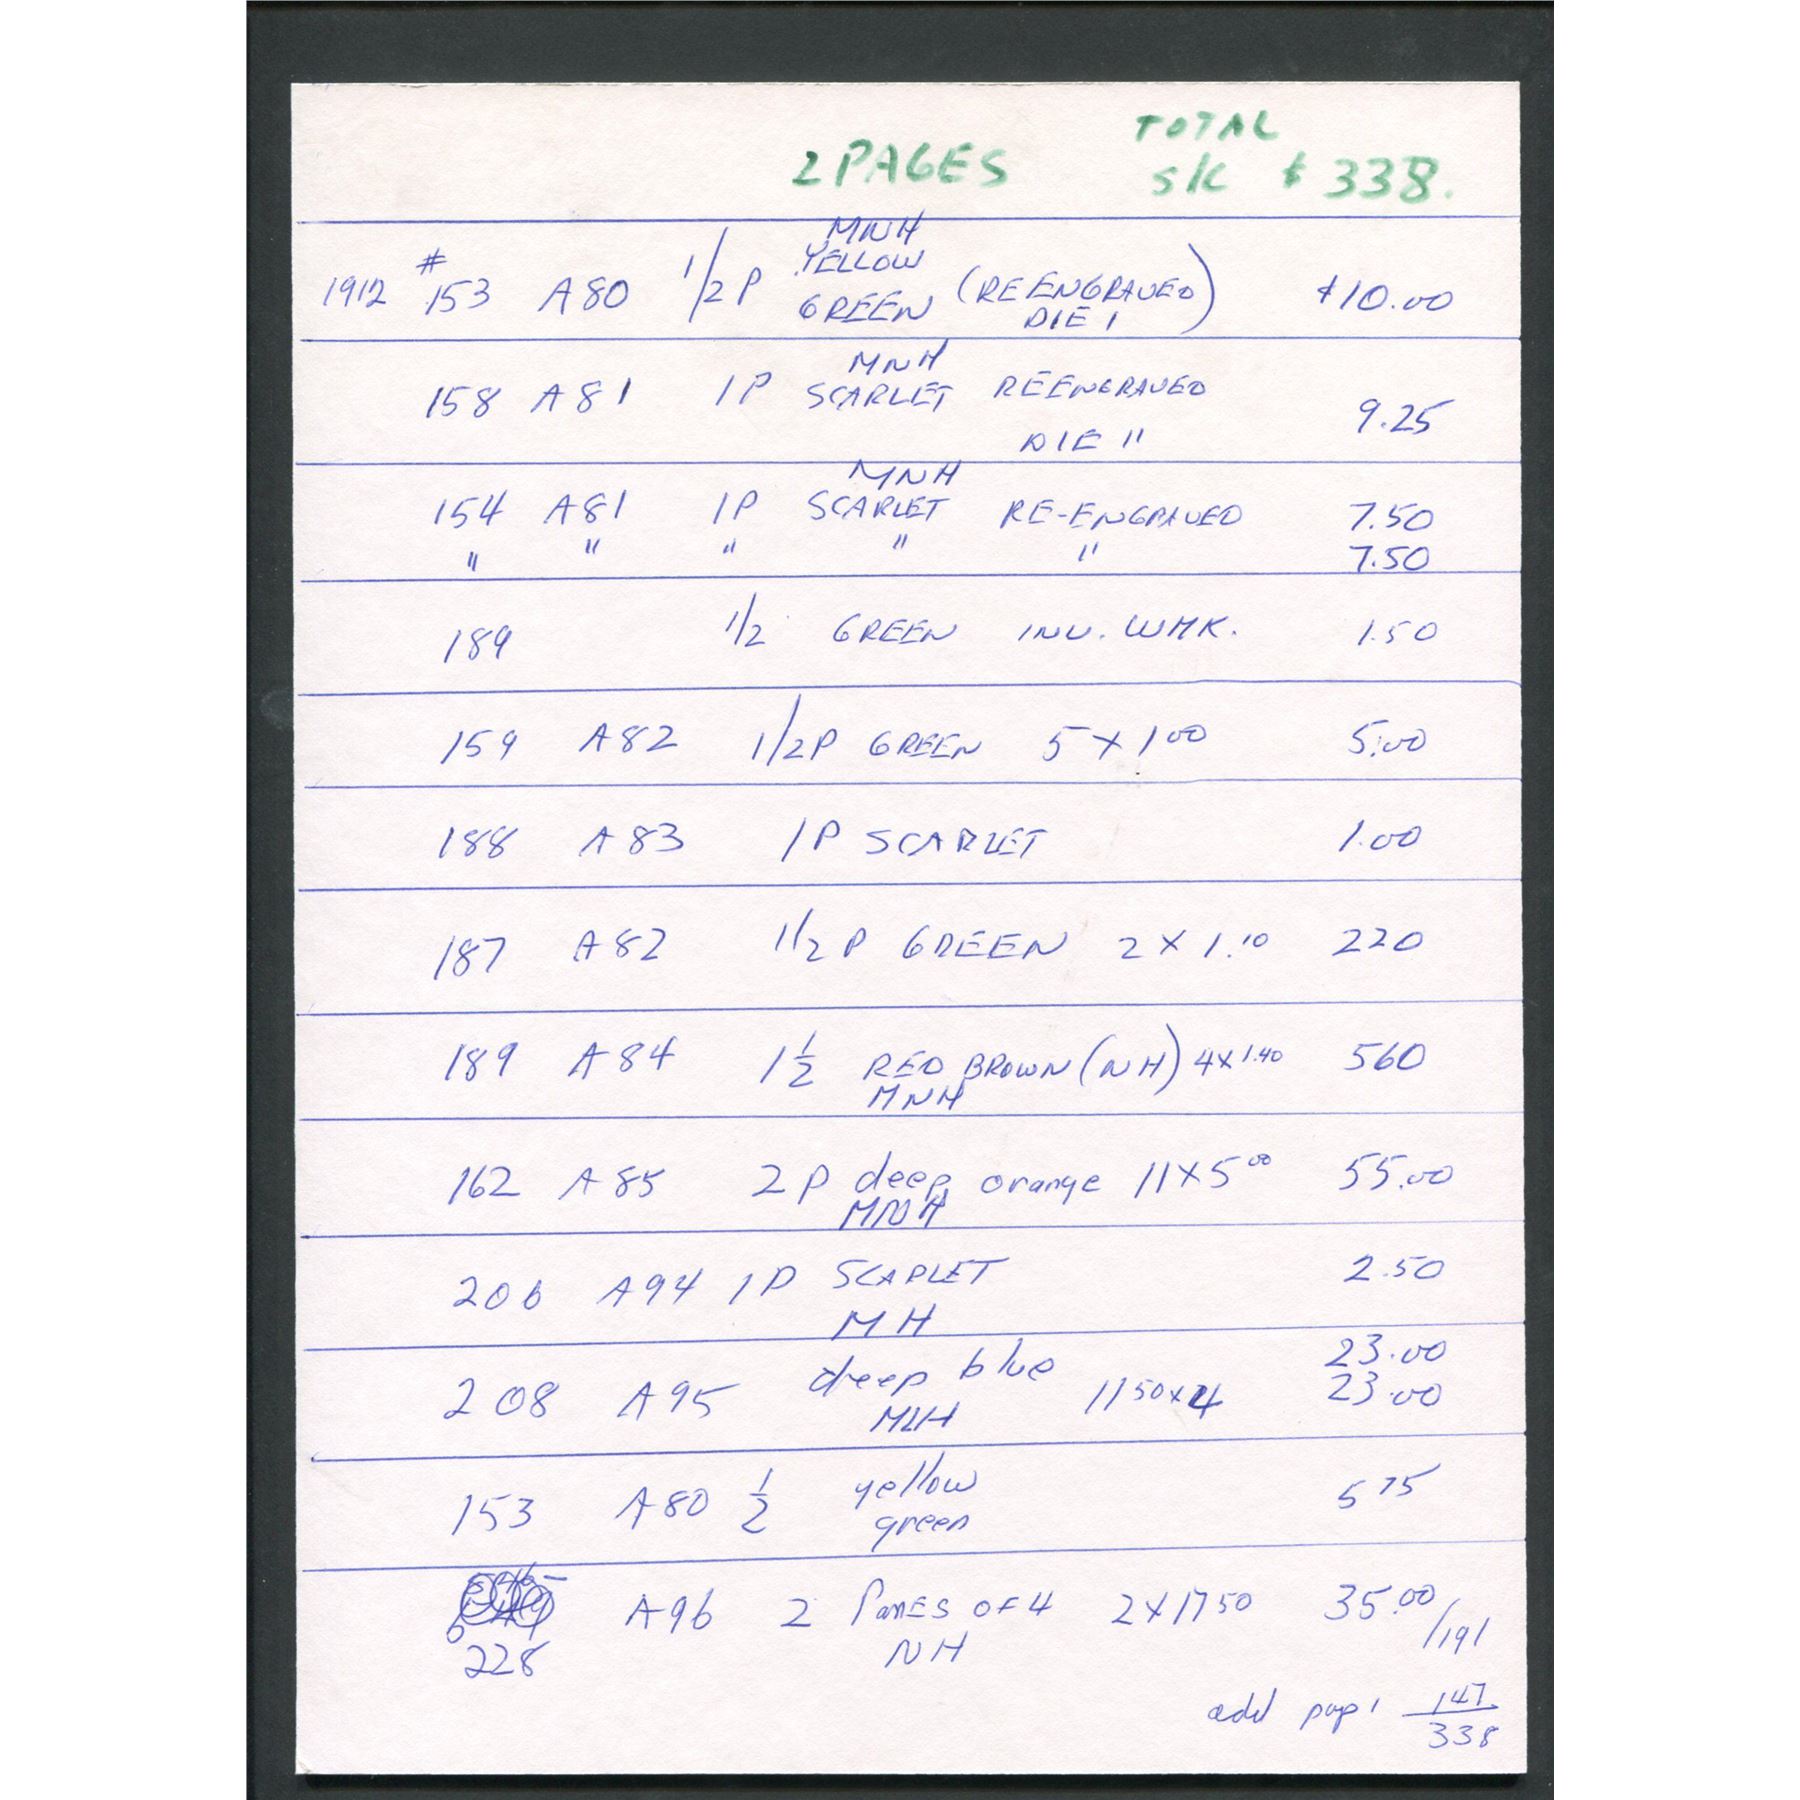 TOTAL
2 PAGES S/C $ 338.
MNH
YELLOW
1912 # 153 A80 1/2P GREEN (REENGRAVED DIE 1) $10.00
MNH
158 A81 1P SCARLET REENGRAVED
DIE 11 9.25
MNH
154 A81 1P SCARLET RE-ENGRAVED 7.50
" " " " " 7.50
189 1/2 GREEN INV. WMK. 1.50
159 A82 1/2P GREEN 5 X 1 00 5.00
188 A83 1P SCARLET 1.00
187 A82 1/2 P GREEN 2 X 1.10 220
189 A84 1 1/2 RED BROWN (NH) 4X1.40 560
MNH
162 A85 2P deep orange 11X5 00 55.00
MNH
206 A94 1P SCARLET 2.50
MH
23.00
208 A95 deep blue 11 50 x 4 23.00
MLH
153 A80 1/2 yellow 5 75
green
A96 2 PANES OF 4 2X17 50 35.00
228 NH /191
add page 1 147
338